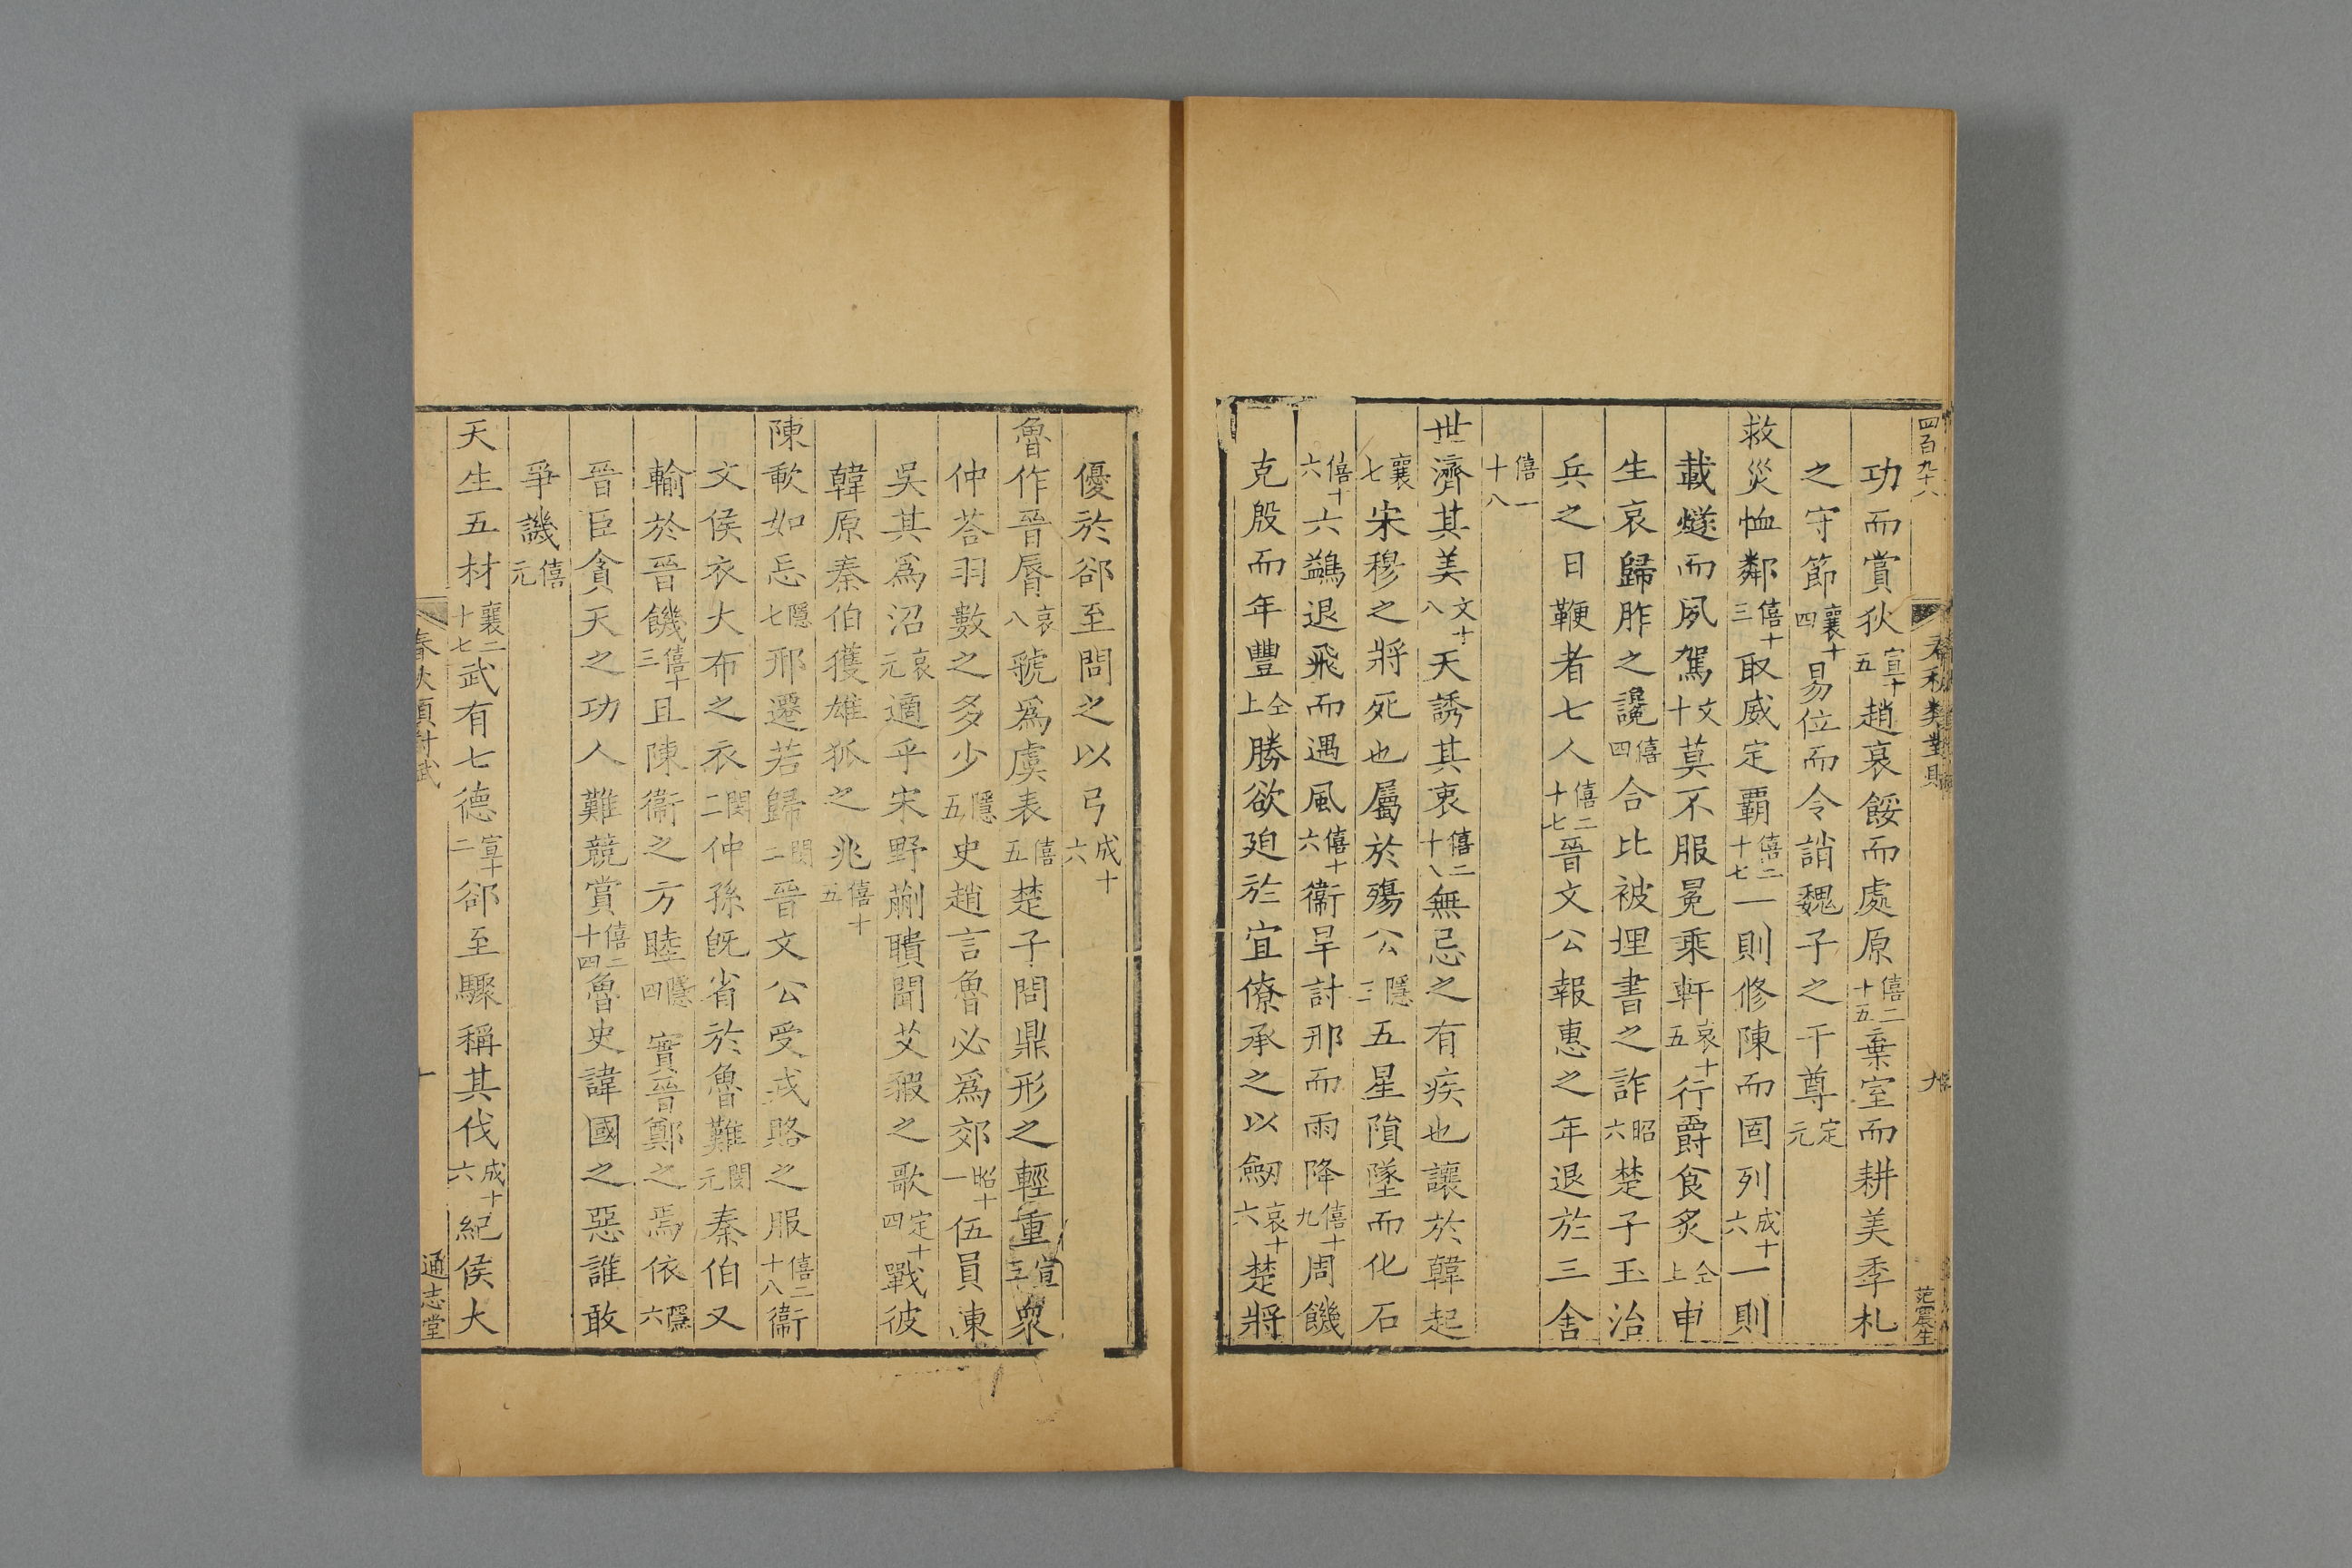 四百九十八
春秋類對賦
九
范震生
功而賞狄宣十五趙衰餒而處原僖二十五棄室而耕美季札
之守節襄十四易位而令誚魏子之干尊定元
救災恤鄰僖十三取威定霸僖二十七一則修陳而固列成十六一則
載燧而夙駕文十莫不服冕乘軒哀十五行爵食炙仝上申
生哀歸胙之讒僖四合比被埋書之詐昭六楚子玉治
兵之日鞭者七人僖二十七晉文公報惠之年退於三舍
僖二十八
世濟其美文十八天誘其衷僖二十八無忌之有疾也讓於韓起
襄七宋穆之將死也屬於殤公隱三五星隕墜而化石
僖十六六鷁退飛而遇風僖十六衞旱討邢而雨降僖十九周饑
克殷而年豐仝上勝欲廹於宜僚承之以劒哀十六楚將
優於郤至問之以弓成十六
魯作晉脣哀八虢爲虞表僖五楚子問鼎形之輕重宣三衆
仲荅羽數之多少隱五史趙言魯必爲郊昭十一伍員東
吳其爲沼哀元適乎宋野蒯聵聞艾豭之歌定十四戰彼
韓原秦伯獲雄狐之兆僖十五
陳歃如忘隱七邢遷若歸閔二晉文公受戎輅之服僖二十八衞
文侯衣大布之衣閔二仲孫旣省於魯難閔元秦伯又
輸於晉饑僖十三且陳衞之方睦隱四實晉鄭之焉依隱六
晉臣貪天之功人難競賞僖二十四魯史諱國之惡誰敢
爭譏僖元
天生五材襄二十七武有七德宣十二郤至驟稱其伐成十六紀侯大
春秋類對賦
十
通志堂